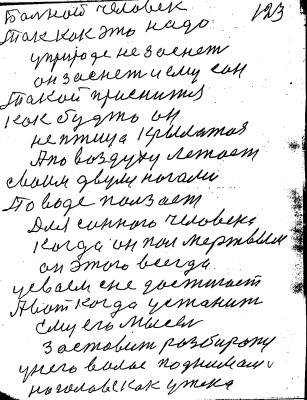 Банной человек 123
Так как это надо
у природе не заснет
он заснет и ему сон
Такой приснится
Как будто он
не птица крылатая
А по воздуху летает
своими двумя ногами
По воде ползает
Для сонного человека
когда он пол мертвым
он этого всегда
усваем сне достигает
А вот когда устанит
ему его мысел
заставит разбирату
у него волос поднимал
на голове как ужека